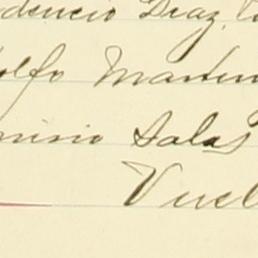 dencio Diaz,
olfo Martin
nisio Salas
Vuel